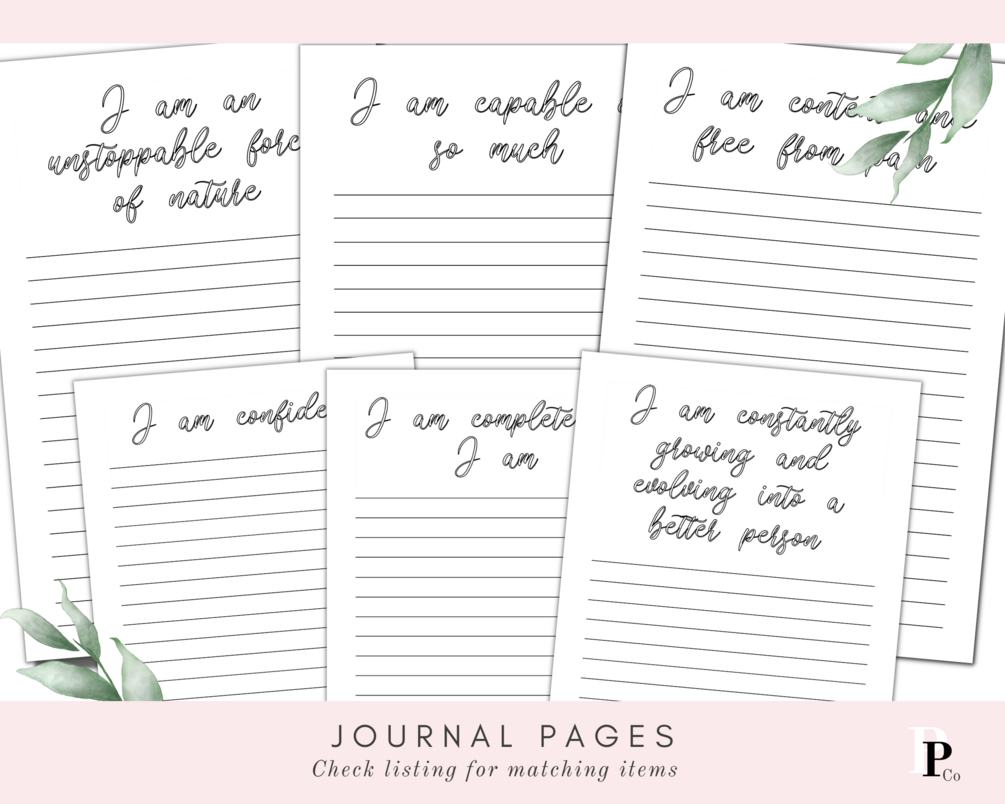 I am an
unstoppable forc
of nature
I am capable
so much
I am conte and
free from pain
I am confide
I am complete
I am
I am constantly
growing and
evolving into a
better person
JOURNAL PAGES
Check listing for matching items
PP
Co